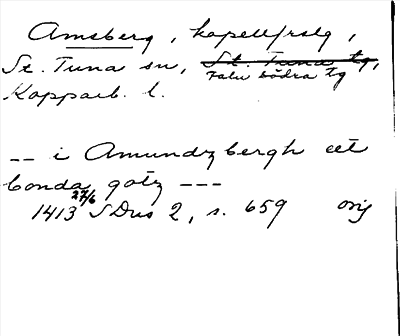 Amsberg, kapellförsg,
St. Tuna sn, St. Tuna tg,
Falu södra tg
Kopparb. l.
-- i Amundzbergh eet
bonda gotz ---
1413 27/6 SDns 2, s. 659 orig